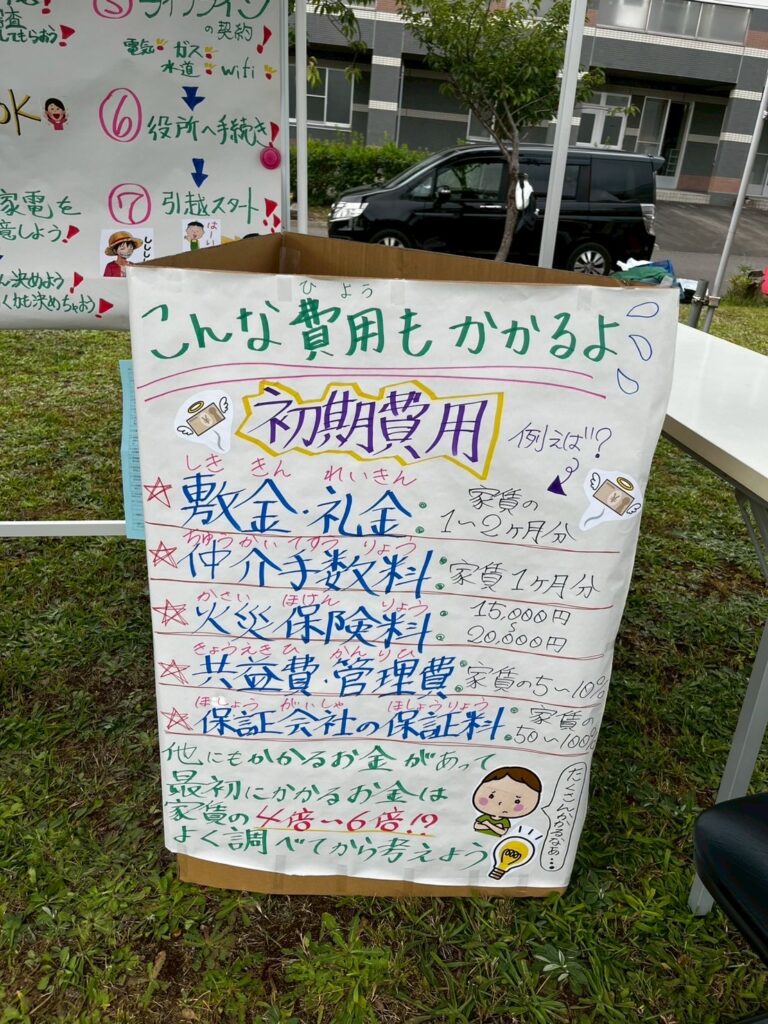 ⑤ライフライン
の契約!
電気 ガス
水道 wifi
してもらおう!
OK
⑥役所へ手続き!
⑦引越スタート!
家電を
意しよう!
ん決めよう!
くかも決めちゃおう!
はーい
ししし
ひよう
こんな費用もかかるよ
初期費用
例えば?
しききん れいきん
☆敷金・礼金:家賃の
1〜2ヶ月分
ちゅうかいてすうりょう
☆仲介手数料:家賃1ヶ月分
かさい ほけん りょう
☆火災保険料:15,000円
〜
20,000円
きょうえきひ かんりひ
☆共益費・管理費:家賃の5〜10%
ほしょう がいしゃ ほしょうりょう
☆保証会社の保証料:家賃の
50〜100%
他にもかかるお金があって
最初にかかるお金は
家賃の4倍〜6倍!?
よく調べてから考えよう
たくさんかかるなぁ…